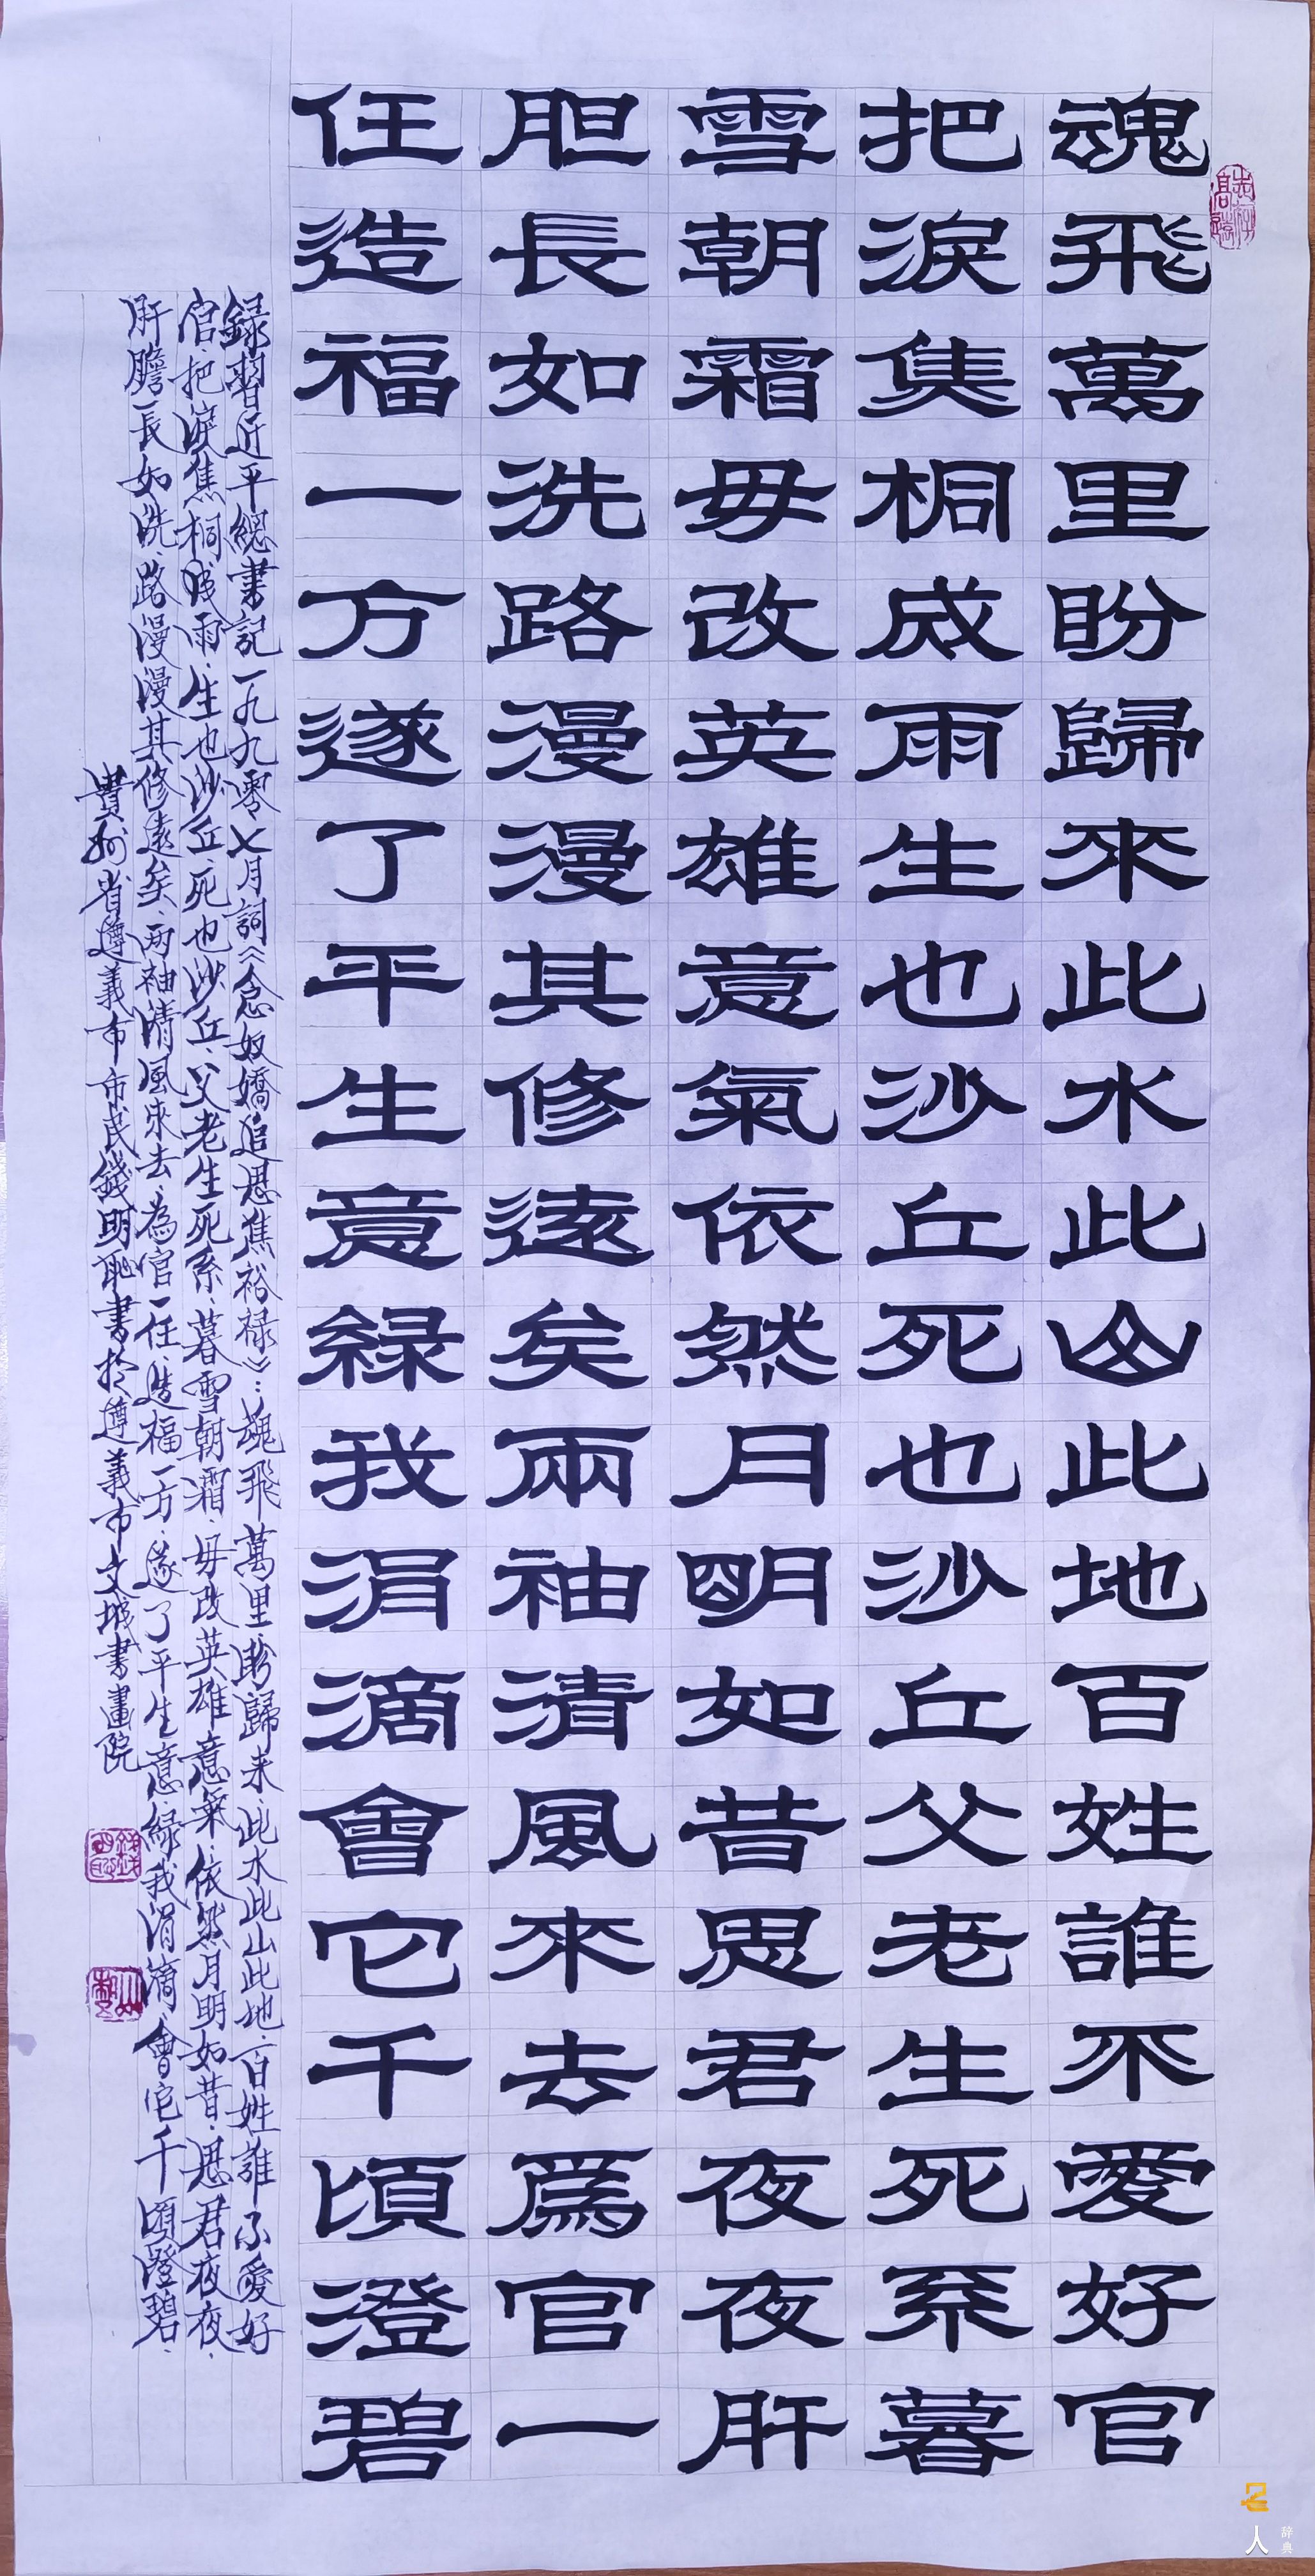 魂飛萬里盼歸來此水此山此地百姓誰不愛好官
把淚焦桐成雨生也沙丘死也沙丘父老生死系暮
雪朝霜毋改英雄意氣依然月明如昔思君夜夜肝
胆長如洗路漫漫其修遠矣兩袖清風來去爲官一
任造福一方遂了平生意綠我涓滴會它千頃澄碧
録習近平總書記一九九零七月詞《念奴嬌追思焦裕禄》：魂飛萬里、盼歸来、此水此山此地、百姓誰不愛好
官、把淚焦桐成雨、生也沙丘、死也沙丘、父老生死系、暮雪朝霜、毋改英雄意氣、依然月明如昔、思君夜夜、
肝膽長如洗、路漫漫其修遠矣、两袖清風來去、為官一任、造福一方、遂了平生意、緑我涓滴、會它千頃澄碧、
貴州省遵義市市民錢明耻書於遵義市文城書畫院
辞典